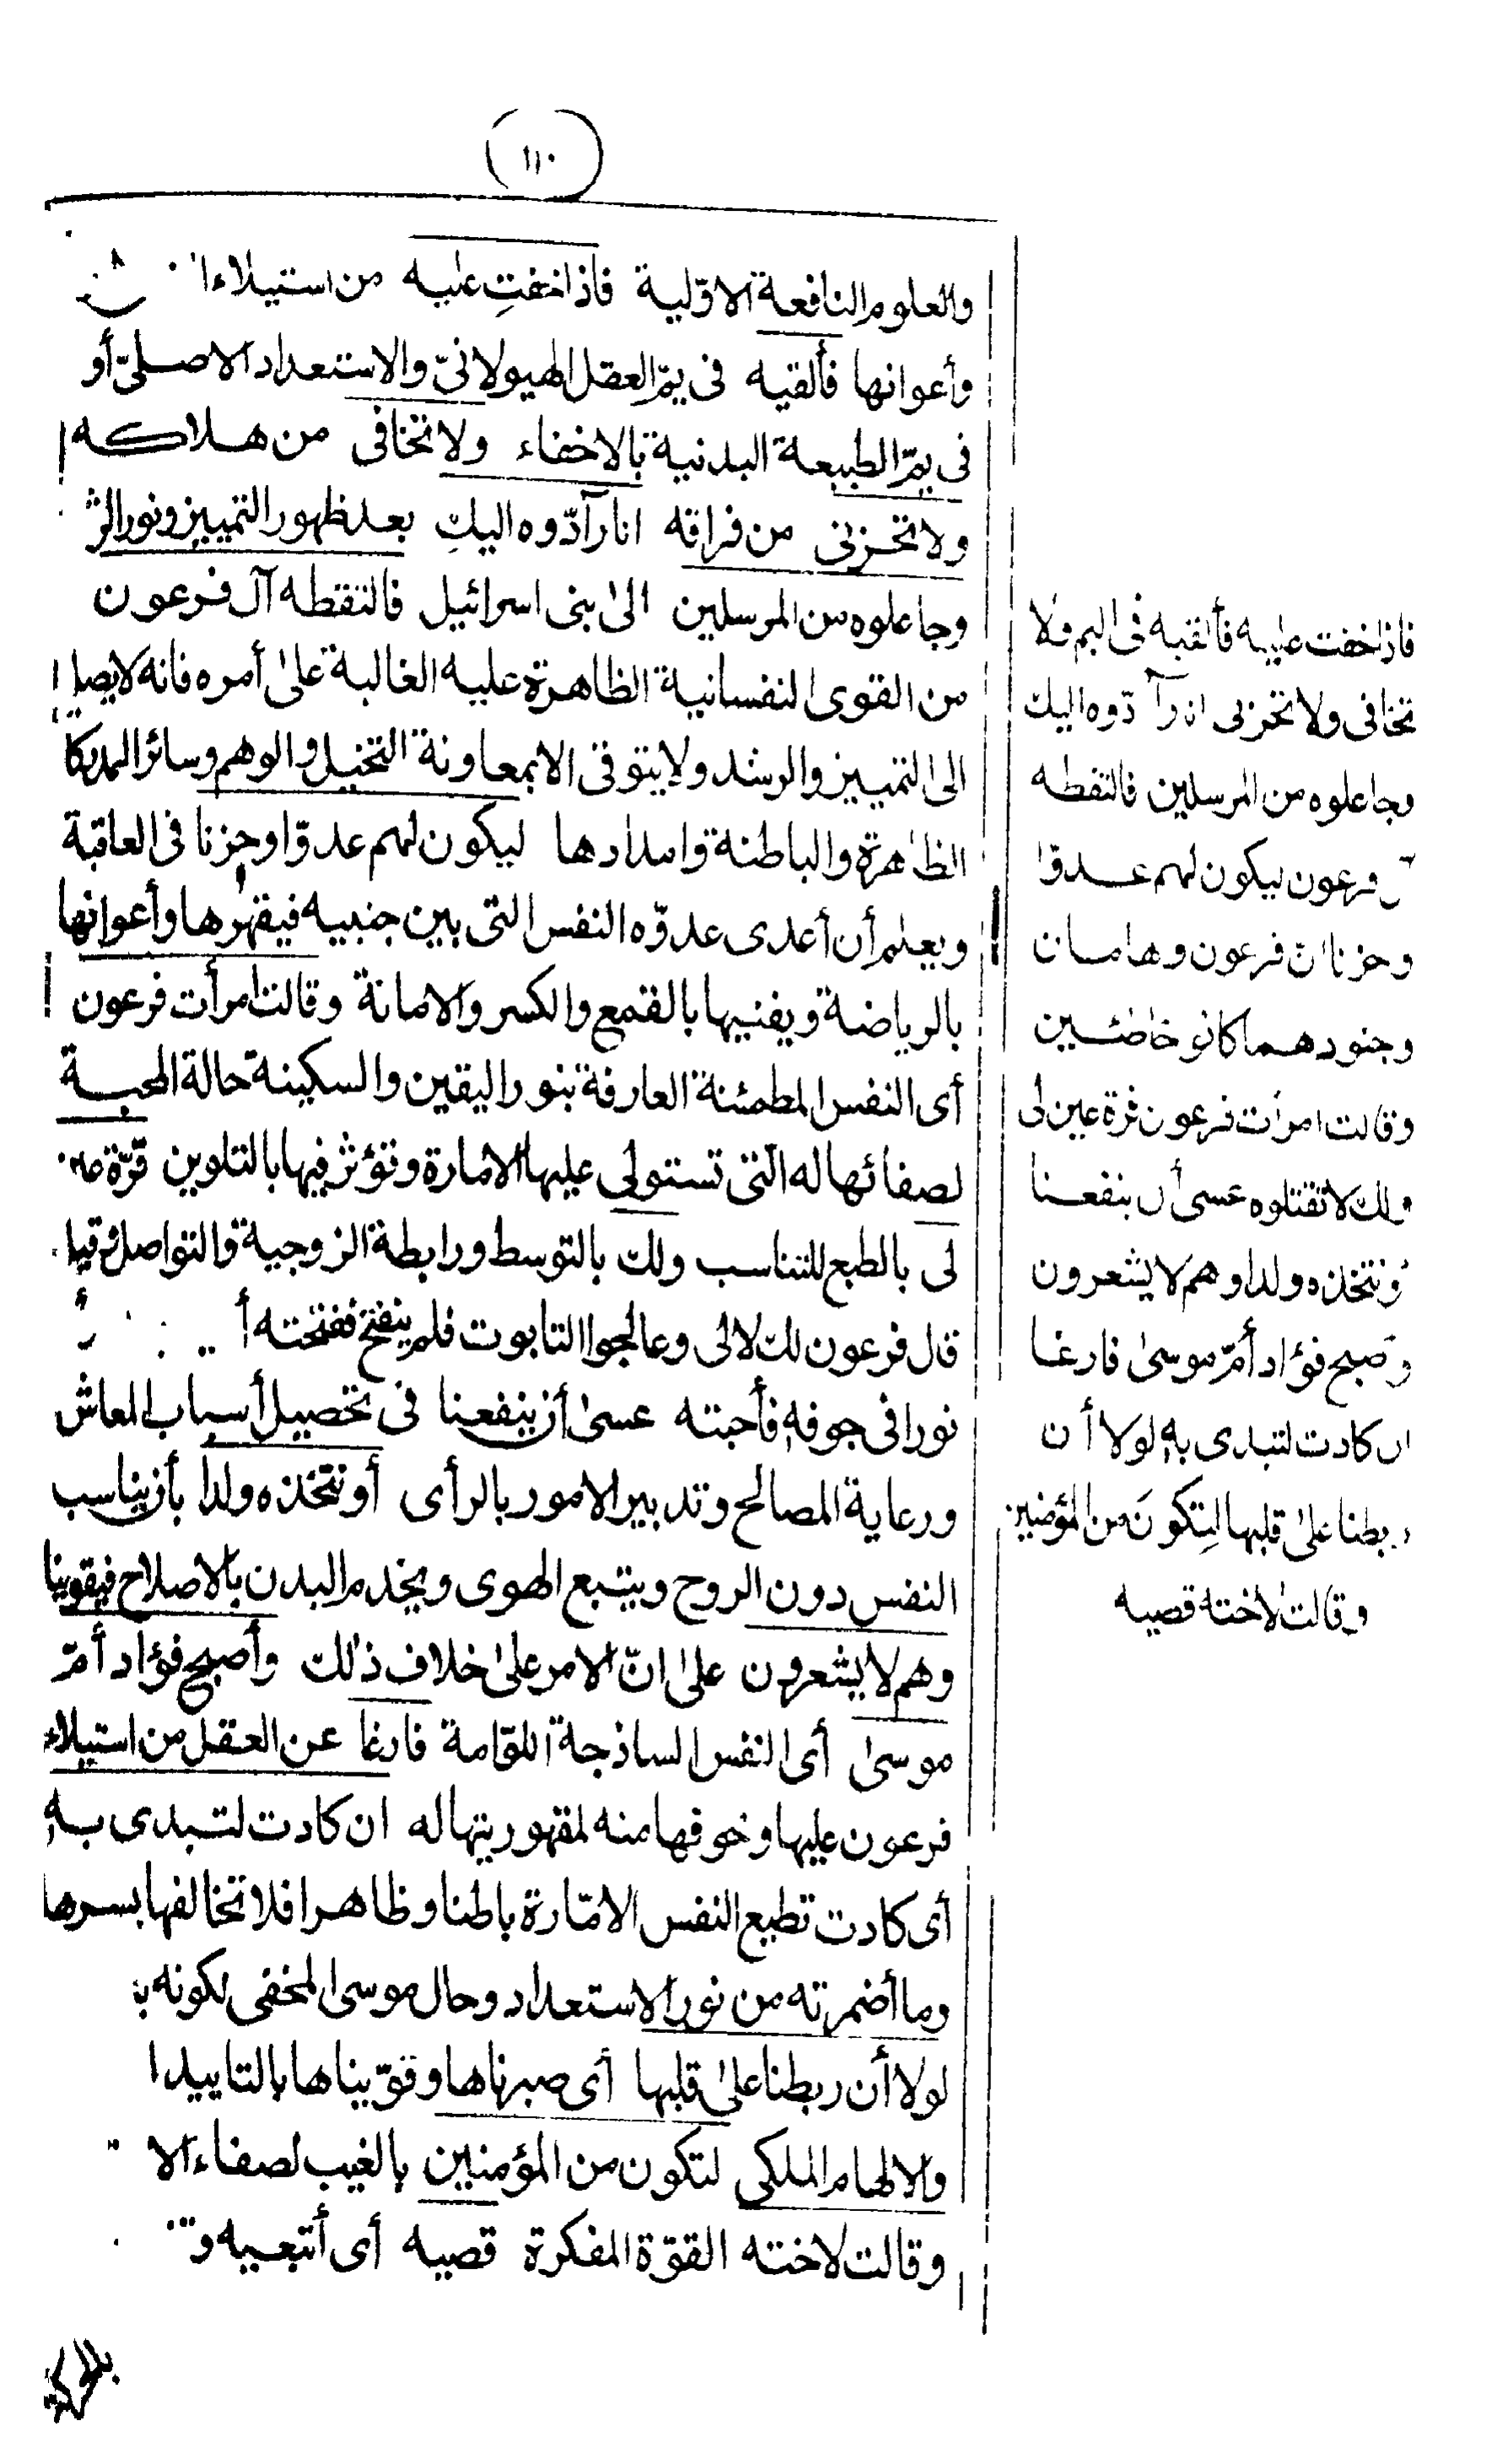 (١١٠)
والعلوم النافعة الاوّلية فاذا خفتِ عليه من استيلاء
وأعوانها فألقيه فى يمّ العقل الهيولانىّ والاستعداد الاصلىّ أو
فى يمّ الطبيعة البدنية بالاخفاء ولا تخافى من هلاكه
ولا تحزنى من فراقه انا رآدّوه اليكِ بعد ظهور التمييز ونور الرّ
وجاعلوه من المرسلين الى بنى اسرائيل فالتقطه آل فرعون
من القوى النفسانية الظاهرة عليه الغالبة على أمره فانه لا يصل
الى التمييز والرشد ولا يتوقى الا بمعاونة التخيل والوهم وسائر المدركا
الظاهرة والباطنة وامدادها ليكون لهم عدوّا وحزنا فى العاقبة
ويعلم أن أعدى عدوّه النفس التى بين جنبيه فيقهرها وأعوانها
بالرياضة ويفنيها بالقمع والكسر والاماتة وقالت امرأت فرعون
أى النفس المطمئنة العارفة بنور اليقين والسكينة حالة المحبة
لصفائها له التى تستولى عليها الامارة وتؤثر فيها بالتلوين قرّة
لى بالطبع للتناسب ولك بالتوسط ورابطة الزوجية والتواصل
قال فرعون لك لا لى وعالجوا التابوت فلم ينفتح ففتحته
نورا فى جوفه فأحبته عسى أن ينفعنا فى تحصيل أسباب المعاش
ورعاية المصالح وتدبير الامور بالرأى أو نتخذه ولدا بأن يناسب
النفس دون الروح ويتبع الهوى ويخدم البدن بالاصلاح فيقوينا
وهم لا يشعرون على انّ الامر على خلاف ذلك وأصبح فؤاد أمّ
موسى أى النفس الساذجة اللوّامة فارغا عن العقل من استيلاء
فرعون عليها وخوفها منه لمقهوريتها له ان كادت لتبدى به
أى كادت تطيع النفس الامّارة باطنا وظاهرا فلا تخالفها بسرها
وما أضمرته من نور الاستعداد وحال موسى المخفى لكونه
لولا أن ربطنا على قلبها أى صبرناها وقوّيناها بالتاييد
والالهام الملكى لتكون من المؤمنين بالغيب لصفاء
وقالت لاخته القوّة المفكرة قصيه أى أتبعيه
فاذا خفت عليه فألقيه فى اليم ولا
تخافى ولا تحزنى انا رآدّوه اليك
وجاعلوه من المرسلين فالتقطه
فرعون ليكون لهم عدوّا
وحزنا انّ فرعون وهامان
وجنودهما كانو خاطئين
وقالت امرأت فرعون قرة عين لى
ولك لا تقتلوه عسى أن ينفعنا
أو نتخذه ولدا وهم لا يشعرون
وأصبح فؤاد أمّ موسى فارغا
ان كادت لتبدى به لولا أن
ربطنا على قلبها لِتكونَ من المؤمنين
وقالت لاخته قصيه